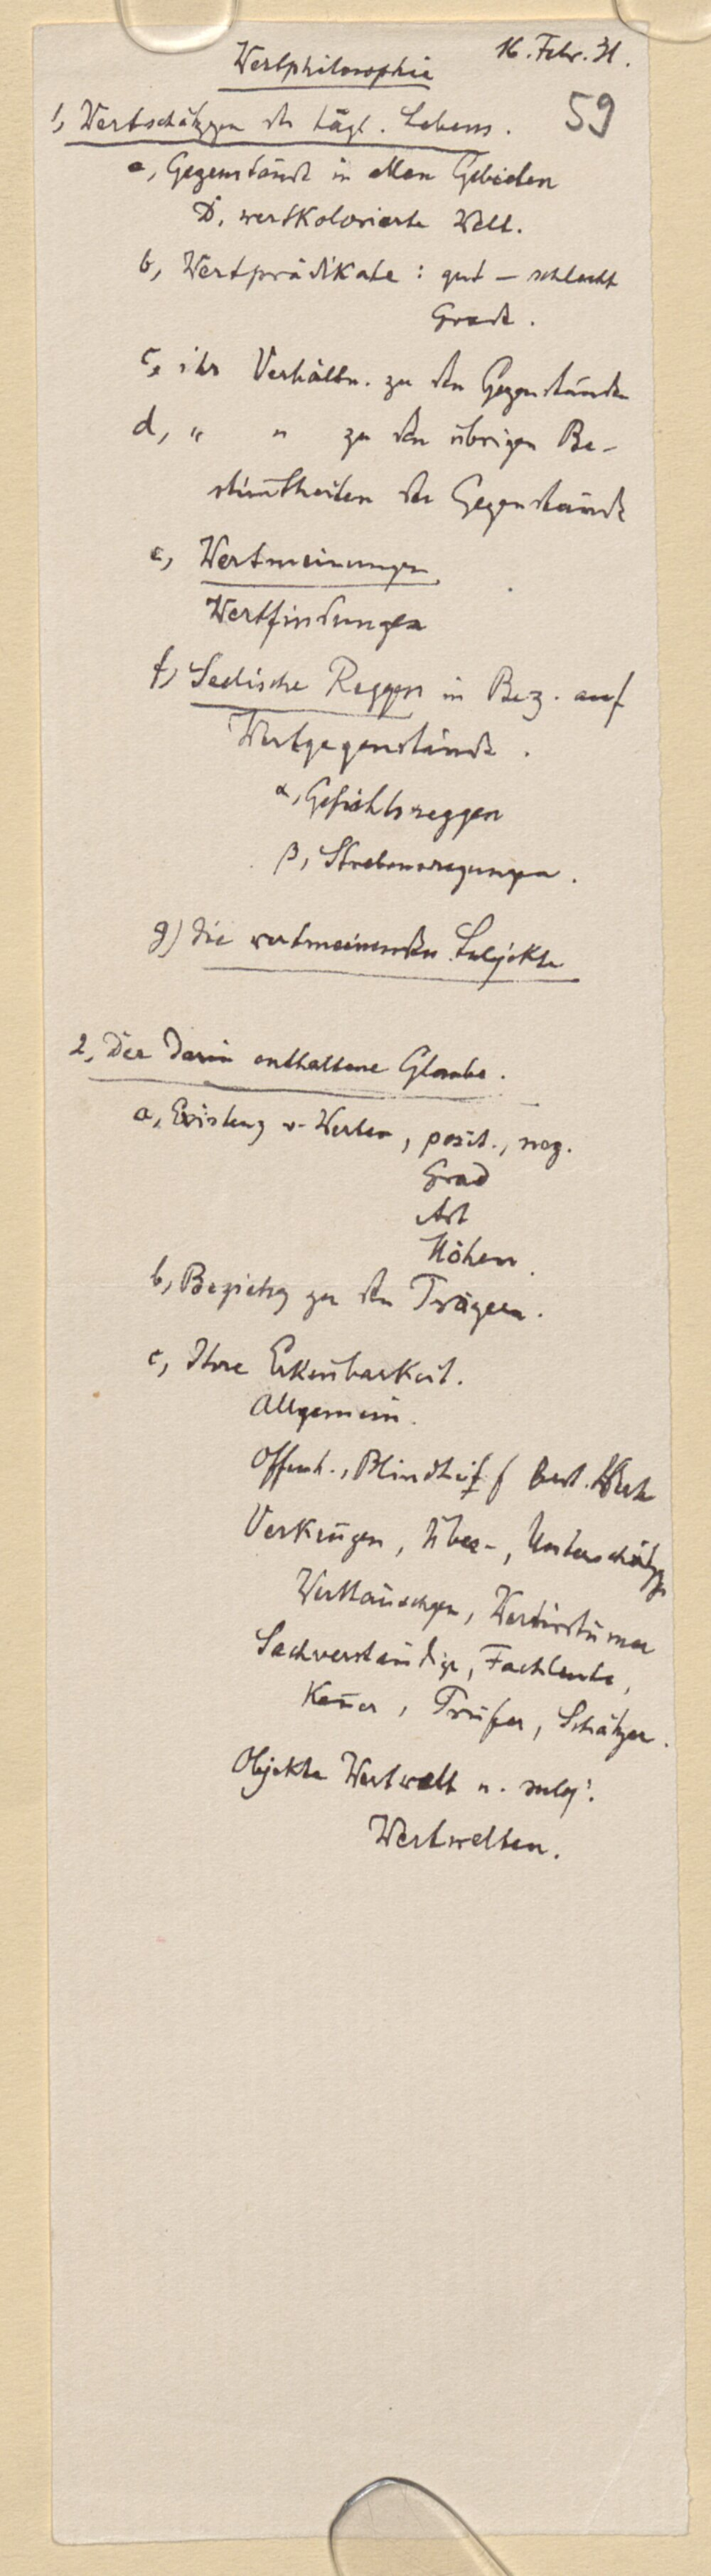 Wertphilosophie 16. Febr. 31.
59
1, Wertschätzgen des tägl. Lebens.
a, Gegenstände in allen Gebieten
D. wertkolorierte Welt.
b, Wertprädikate : gut – schlecht
Grade.
c, ihr Verhältn. zu den Gegenständen
d, " " zu den übrigen Be-
stim̅theiten der Gegenstände
e, Wertmeinungen
Wertfindungen
f, Seelische Reggen in Bez. auf
Wertgegenstände.
α, Gefühlsreggen
β, Strebensregungen.
g) die wertmeinenden Subjekte
2, Der darin enthaltene Glaube.
a, Existenz v. Werten, posit., neg.
Grad
Art
Höhen.
b, Beziehg zu den Trägern.
c, Ihre Erken̅barkeit.
Allgemein.
Offenh., Blindheit f best. Werte
Verken̅gen, Über-, Unterschätzg
Werttäuschgen, Wertirrtümer
Sachverständige, Fachleute,
Ken̅er, Prüfer, Schätzer.
Objekte Wertwelt u. subj.
Wertwelten.